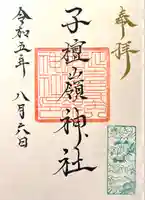 奉拝
子檀嶺神社
令和五年
八月六日